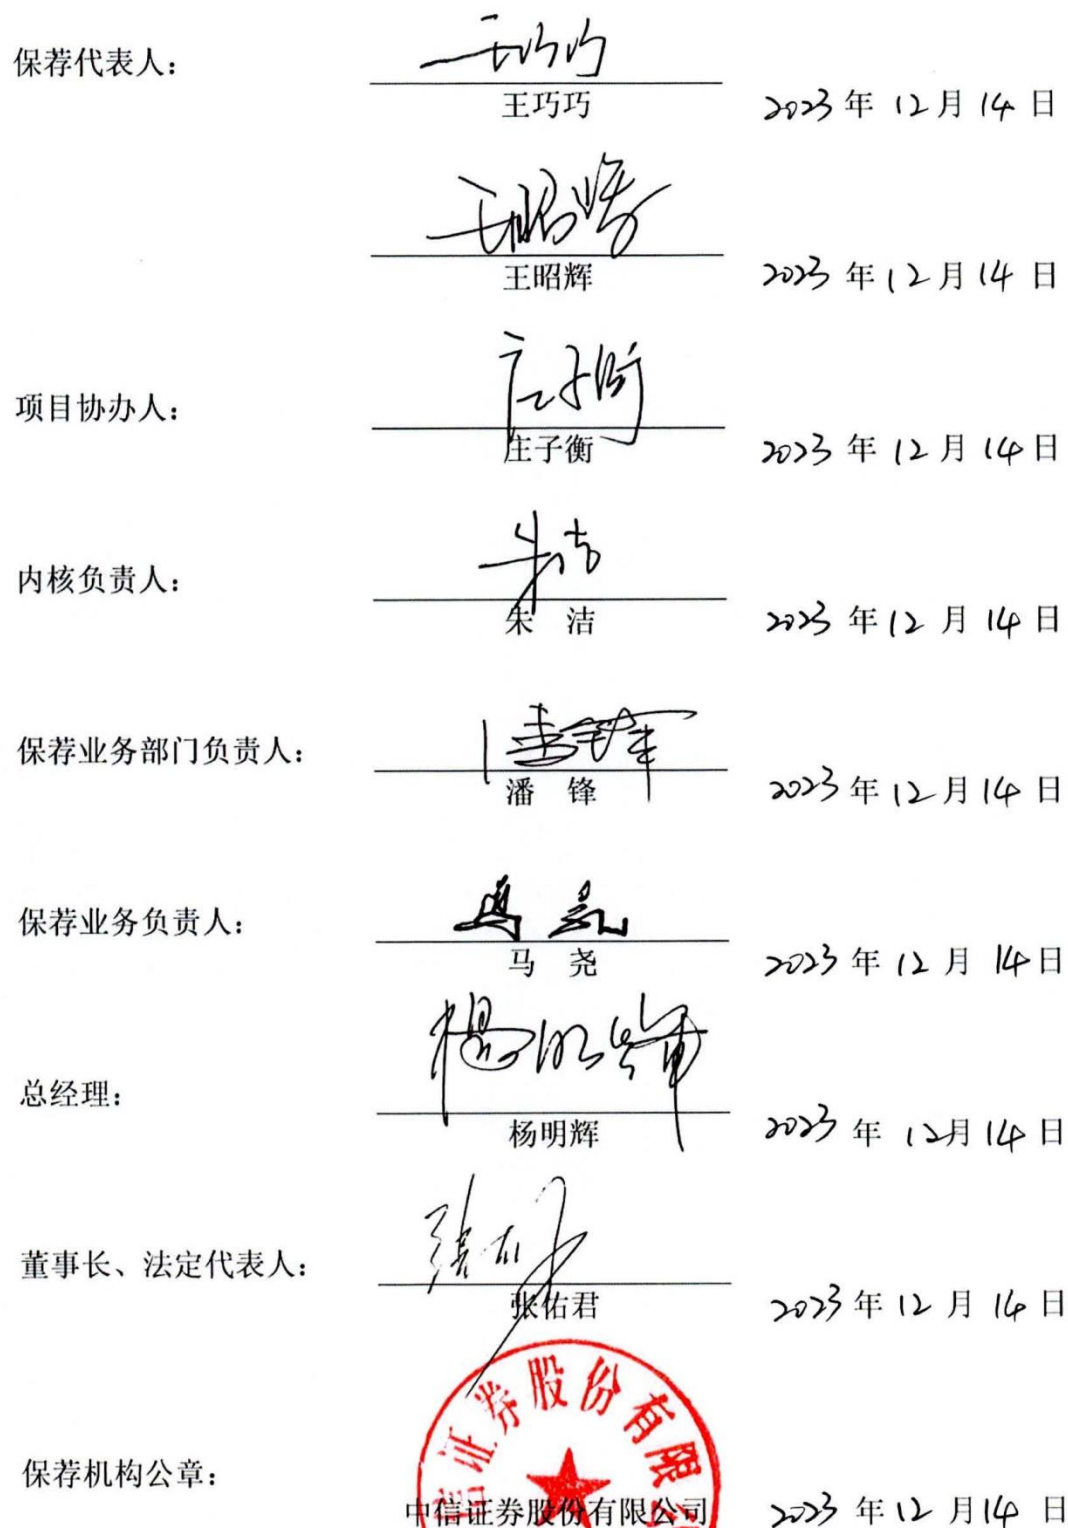 保荐代表人：
王巧巧
王巧巧 2023 年 12 月 14 日
王昭辉
王昭辉 2023 年 12 月 14 日
庄子衡
项目协办人：
庄子衡 2023 年 12 月 14 日
朱洁
内核负责人：
朱 洁 2023 年 12 月 14 日
潘锋
保荐业务部门负责人：
潘 锋 2023 年 12 月 14 日
马尧
保荐业务负责人：
马 尧 2023 年 12 月 14 日
楊明辉
总经理：
杨明辉 2023 年 12 月 14 日
张佑君
董事长、法定代表人：
张佑君 2023 年 12 月 14 日
信证券股份有限公
保荐机构公章：
中信证券股份有限公司 2023 年 12 月 14 日